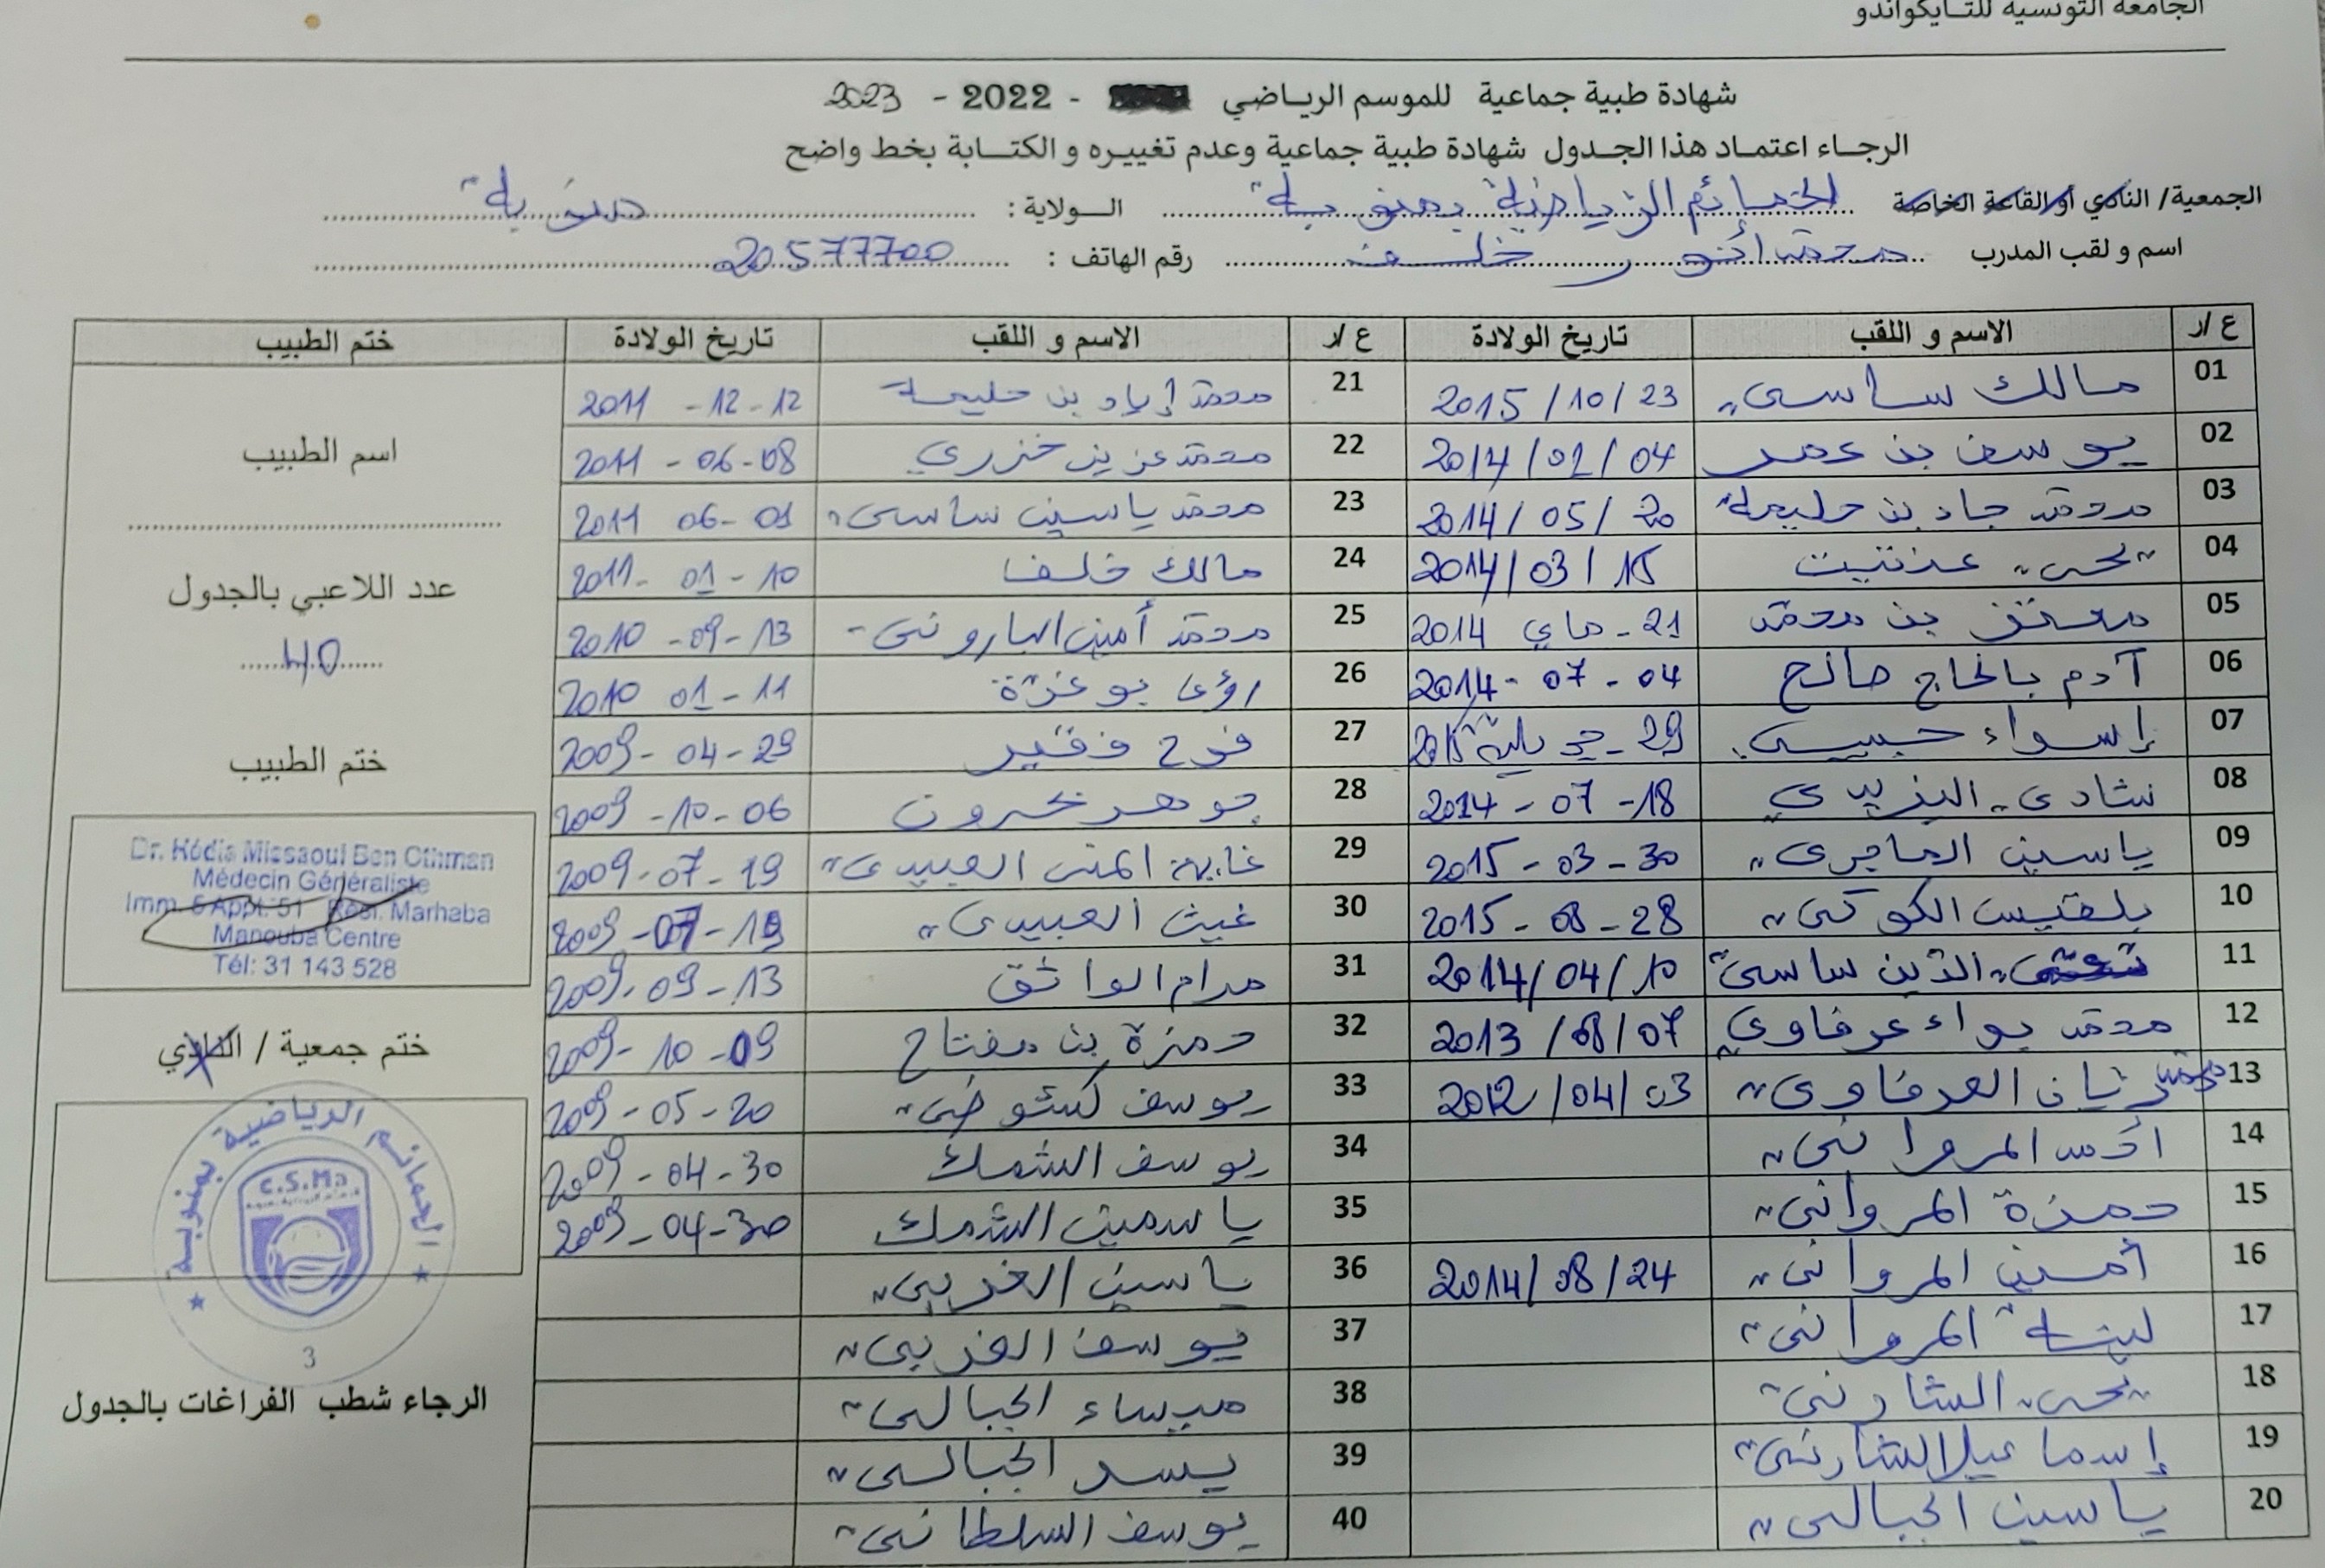 الجامعة التونسية للتايكواندو
شهادة طبية جماعية للموسم الرياضي - 2022 - 2023
الرجاء اعتماد هذا الجدول شهادة طبية جماعية وعدم تغييره و الكتابة بخط واضح
الجمعية/ النادي أو القاعة الخاصة الحمائم الرياضية بمنوبة الولاية : منوبة
اسم و لقب المدرب محمد أنور خلف رقم الهاتف : 20577700
ع/ر الاسم و اللقب تاريخ الولادة ع/ر الاسم و اللقب تاريخ الولادة ختم الطبيب
01 مالك ساسي 2015/10/23 21 محمد إياد بن حليمة 2011 - 12 - 12
02 يوسف بن عمر 2014/01/04 22 محمد عزيز خزري 2011 - 06 - 08
03 محمد جاد بن حليمة 2014/05/20 23 محمد ياسين ساسي 2011 06 - 01
04 يحي 2014/03/15 24 مالك خلف 2011 - 01 - 10
05 معتز بن محمد 21 - ماي 2014 25 محمد أمين الباروني 2010 - 09 - 13
06 آدم بالحاج صالح 2014 - 07 - 04 26 رؤى بوعزة 2010 01 - 11
07 إسراء حبيبي 29 - جويلية 27 فرح فقير 2009 - 04 - 29
08 شادي اليزيدي 2014 - 07 - 18 28 جوهر بحرون 2009 - 10 - 06
09 ياسين الماجري 2015 - 03 - 30 29 العبيدي 2009 - 07 - 19
10 بلقيس الكوكي 2015 - 08 - 28 30 غيث العبيدي 2009 - 07 - 19
11 الدين ساسي 2014/04/10 31 مرام الواثق 2009 - 09 - 13
12 محمد براء عرفاوي 2013/08/07 32 حمزة بن مفتاح 2009 - 10 - 09
13 محمد ريان العرفاوي 2012/04/03 33 يوسف 2009 - 05 - 20
14 المرواني 34 يوسف الشمك 2009 - 04 - 30
15 حمزة المرواني 35 ياسمين الشمك 2009 - 04 - 30
16 أمين المرواني 2014/08/24 36 ياسين الغربي
17 لينة المرواني 37 يوسف الغربي
18 يحي الشارني 38 ميساء الجبالي
19 إسماعيل الشارني 39 يسر الجبالي
20 ياسين الجبالي 40 يوسف السلطاني
اسم الطبيب
عدد اللاعبي بالجدول
40
ختم الطبيب
Dr. Hédia Missaoui Ben Othman
Médecin Généraliste
Imm. 5 Appt. 51 Rési. Marhaba
Manouba Centre
Tél: 31 143 528
ختم جمعية / النادي
الحمائم الرياضية بمنوبة
C.S.Ma
3
الرجاء شطب الفراغات بالجدول